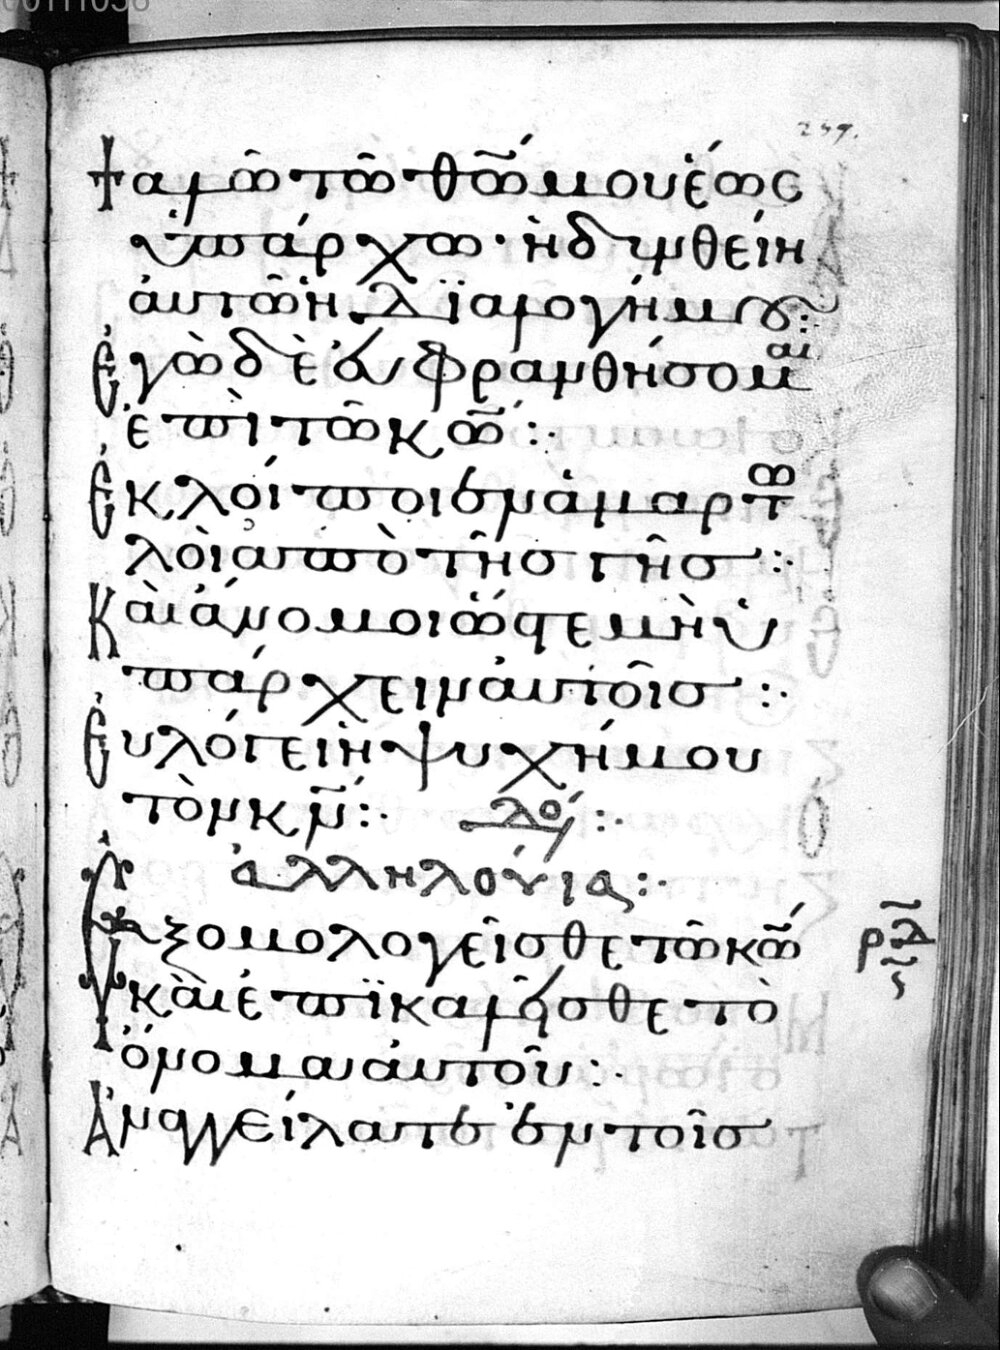 00111056
239.
ψαλῶ τῶ θω̃ μου ἕως
ὑπάρχω· ἡδυνθείη
ἀυτῶ ἡ διαλογή μου:
Ἐγὼ δὲ ἐυφρανθήσομαι
ἐπὶ τῶ κω̃:·
Ἐκλοίποιεν ἁμαρτω
λοὶ ἀπὸ τῆς γῆς:·
Καὶ ἄνομοι ὥστε μὴ ὑ
πάρχειν ἀυτοῖς:·
Ἐυλόγει ἡ ψυχή μου
τὸν κν̃:· λό:·
ἀλληλούϊα:·
Ἐξομολογεῖσθε τῶ κω̃
καὶ ἐπικαλεῖσθε τὸ
ὄνομα ἀυτοῦ:·
Ἀναγγείλατε ἐν τοῖς
ρ̃δ
ς̃